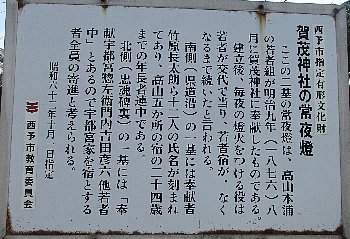 西予市指定有形文化財
賀茂神社の常夜燈
ここの二基の常夜燈は、高山本浦
の若者組が明治九年(一八七六)八
月に賀茂神社に奉献したものである。
建立後、毎夜の燈火をつける役は
若者が交代で当り、若者宿が、なく
なるまで続いたと言われる。
南側(県道沿)の一基には奉献者
竹原長太郎ら十二人の氏名が刻まれ
てあり、高山五か所の宿の二十四歳
までの年長者連中である。
北側(忠魂碑裏)の一基には「奉
献宇都宮惣左衛門内吉田彦六他若者
中」とあるので宇都宮家を宿とする
若者全員の寄進と考えられる。
昭和六十二年十月二日指定
西予市教育委員会